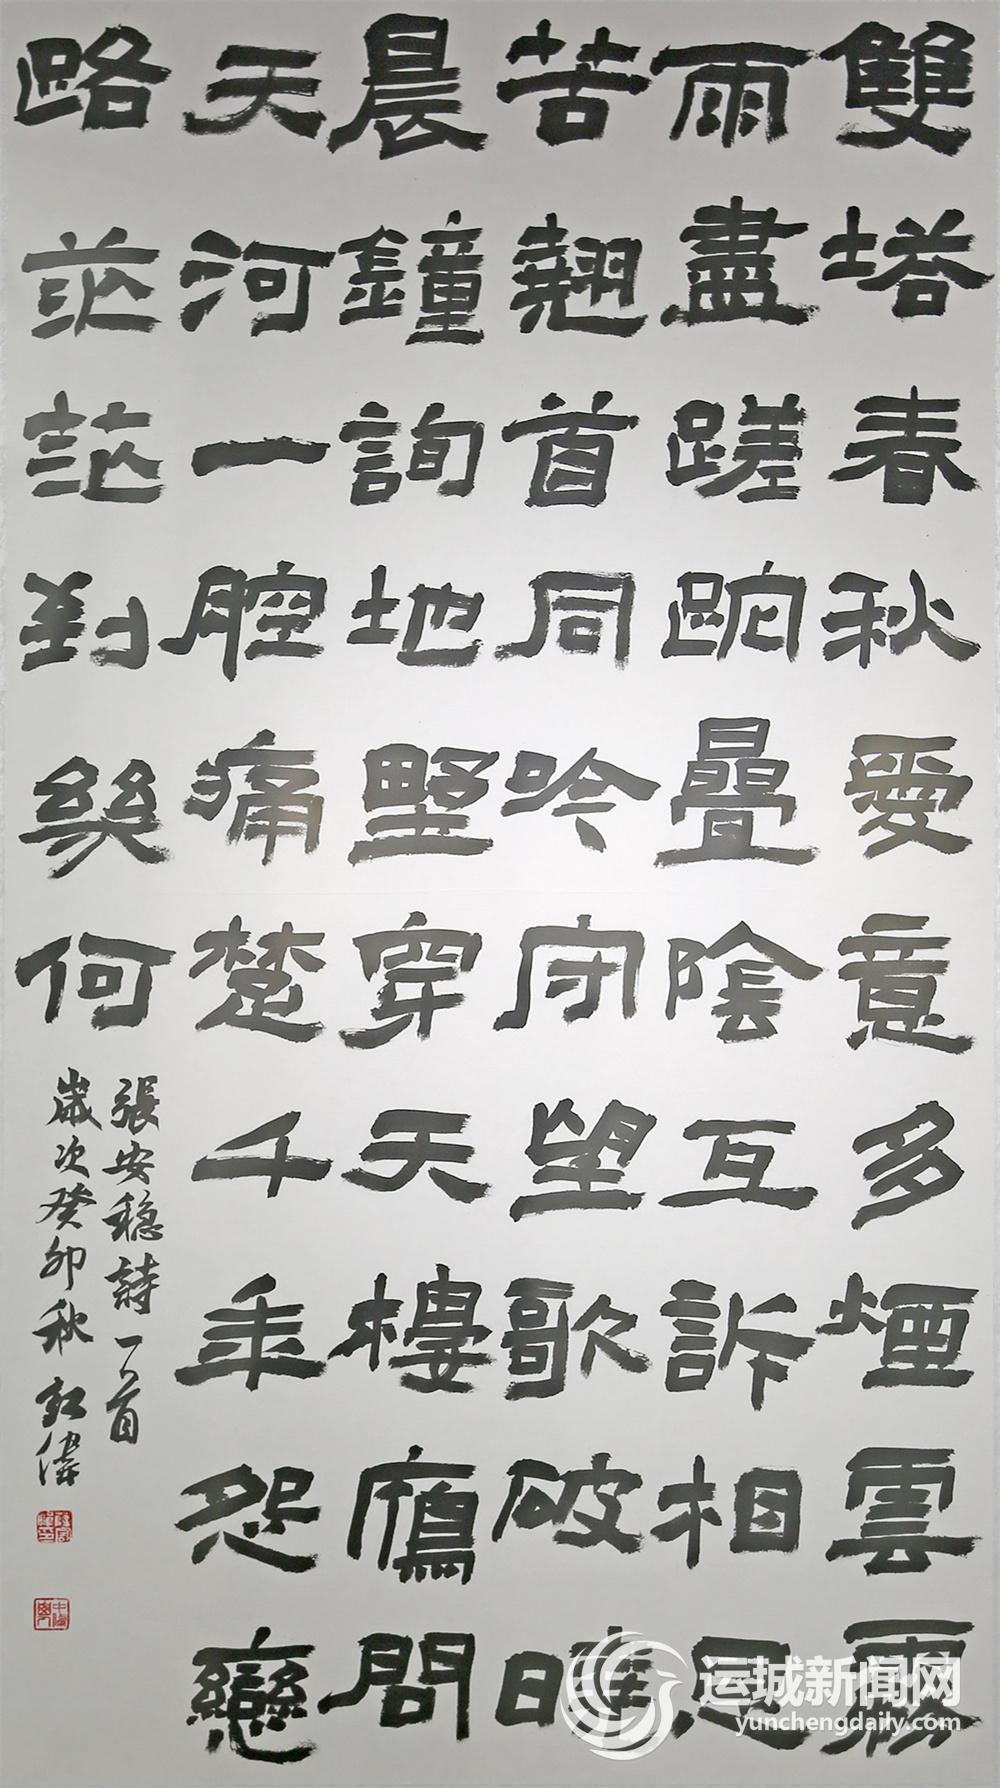 雙塔春秋愛意多煙雲霧
雨盡蹉跎疊陰互訴相思
苦翹首同吟守望歌破曉
晨鐘詢地野穿天樓鴈問
天河一腔痛楚千年怨戀
路茫茫對幾何
張安穩詩一首
歲次癸卯秋
运城新闻网
yunchengdaily.com